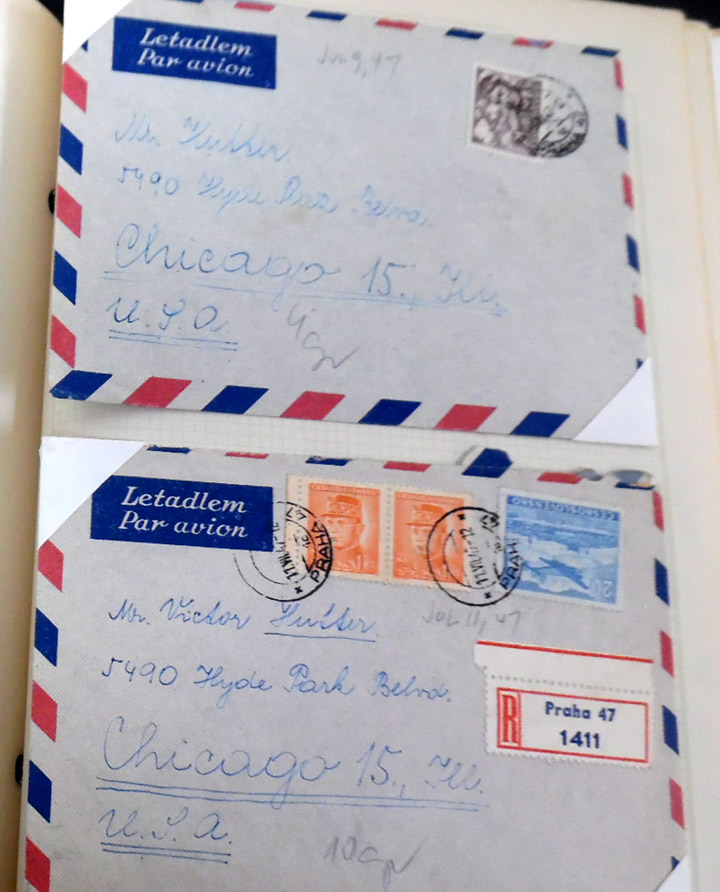 Letadlem
Par avion
Jul 9, 47
Mr. Hutter.
5490 Hyde Park Belvd.
Chicago 15., Ill.
U.S.A.
4 gr
Letadlem
Par avion
ČESKOSLOVENSKO
20
PRAHA
PRAHA
Jul 11, 47
Mr. Victor Hutter.
5490 Hyde Park Belvd.
R
Praha 47
1411
Chicago 15., Ill.
U.S.A.
10 gr